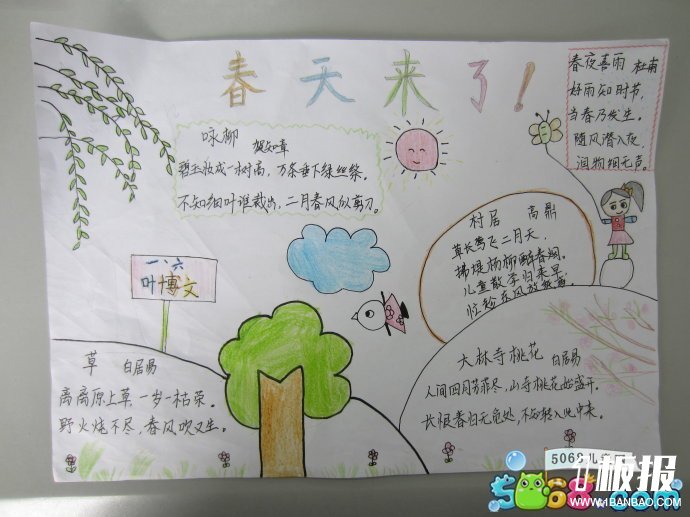 春天来了!
咏柳 贺知章
碧玉妆成一树高，万条垂下绿丝绦。
不知细叶谁裁出，二月春风似剪刀。
春夜喜雨 杜甫
好雨知时节，
当春乃发生。
随风潜入夜，
润物细无声。
村居 高鼎
草长莺飞二月天，
拂堤杨柳醉春烟。
儿童散学归来早，
忙趁东风放
一、六
叶博文
草 白居易
离离原上草，一岁一枯荣。
野火烧不尽，春风吹又生。
大林寺桃花 白居易
人间四月芳菲尽，山寺桃花始盛开。
长恨春归无觅处，不知转入此中来。
5068儿童
板报
WWW.1BANBAO.COM
5068.com